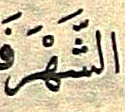 الشَّهْرَ فَ